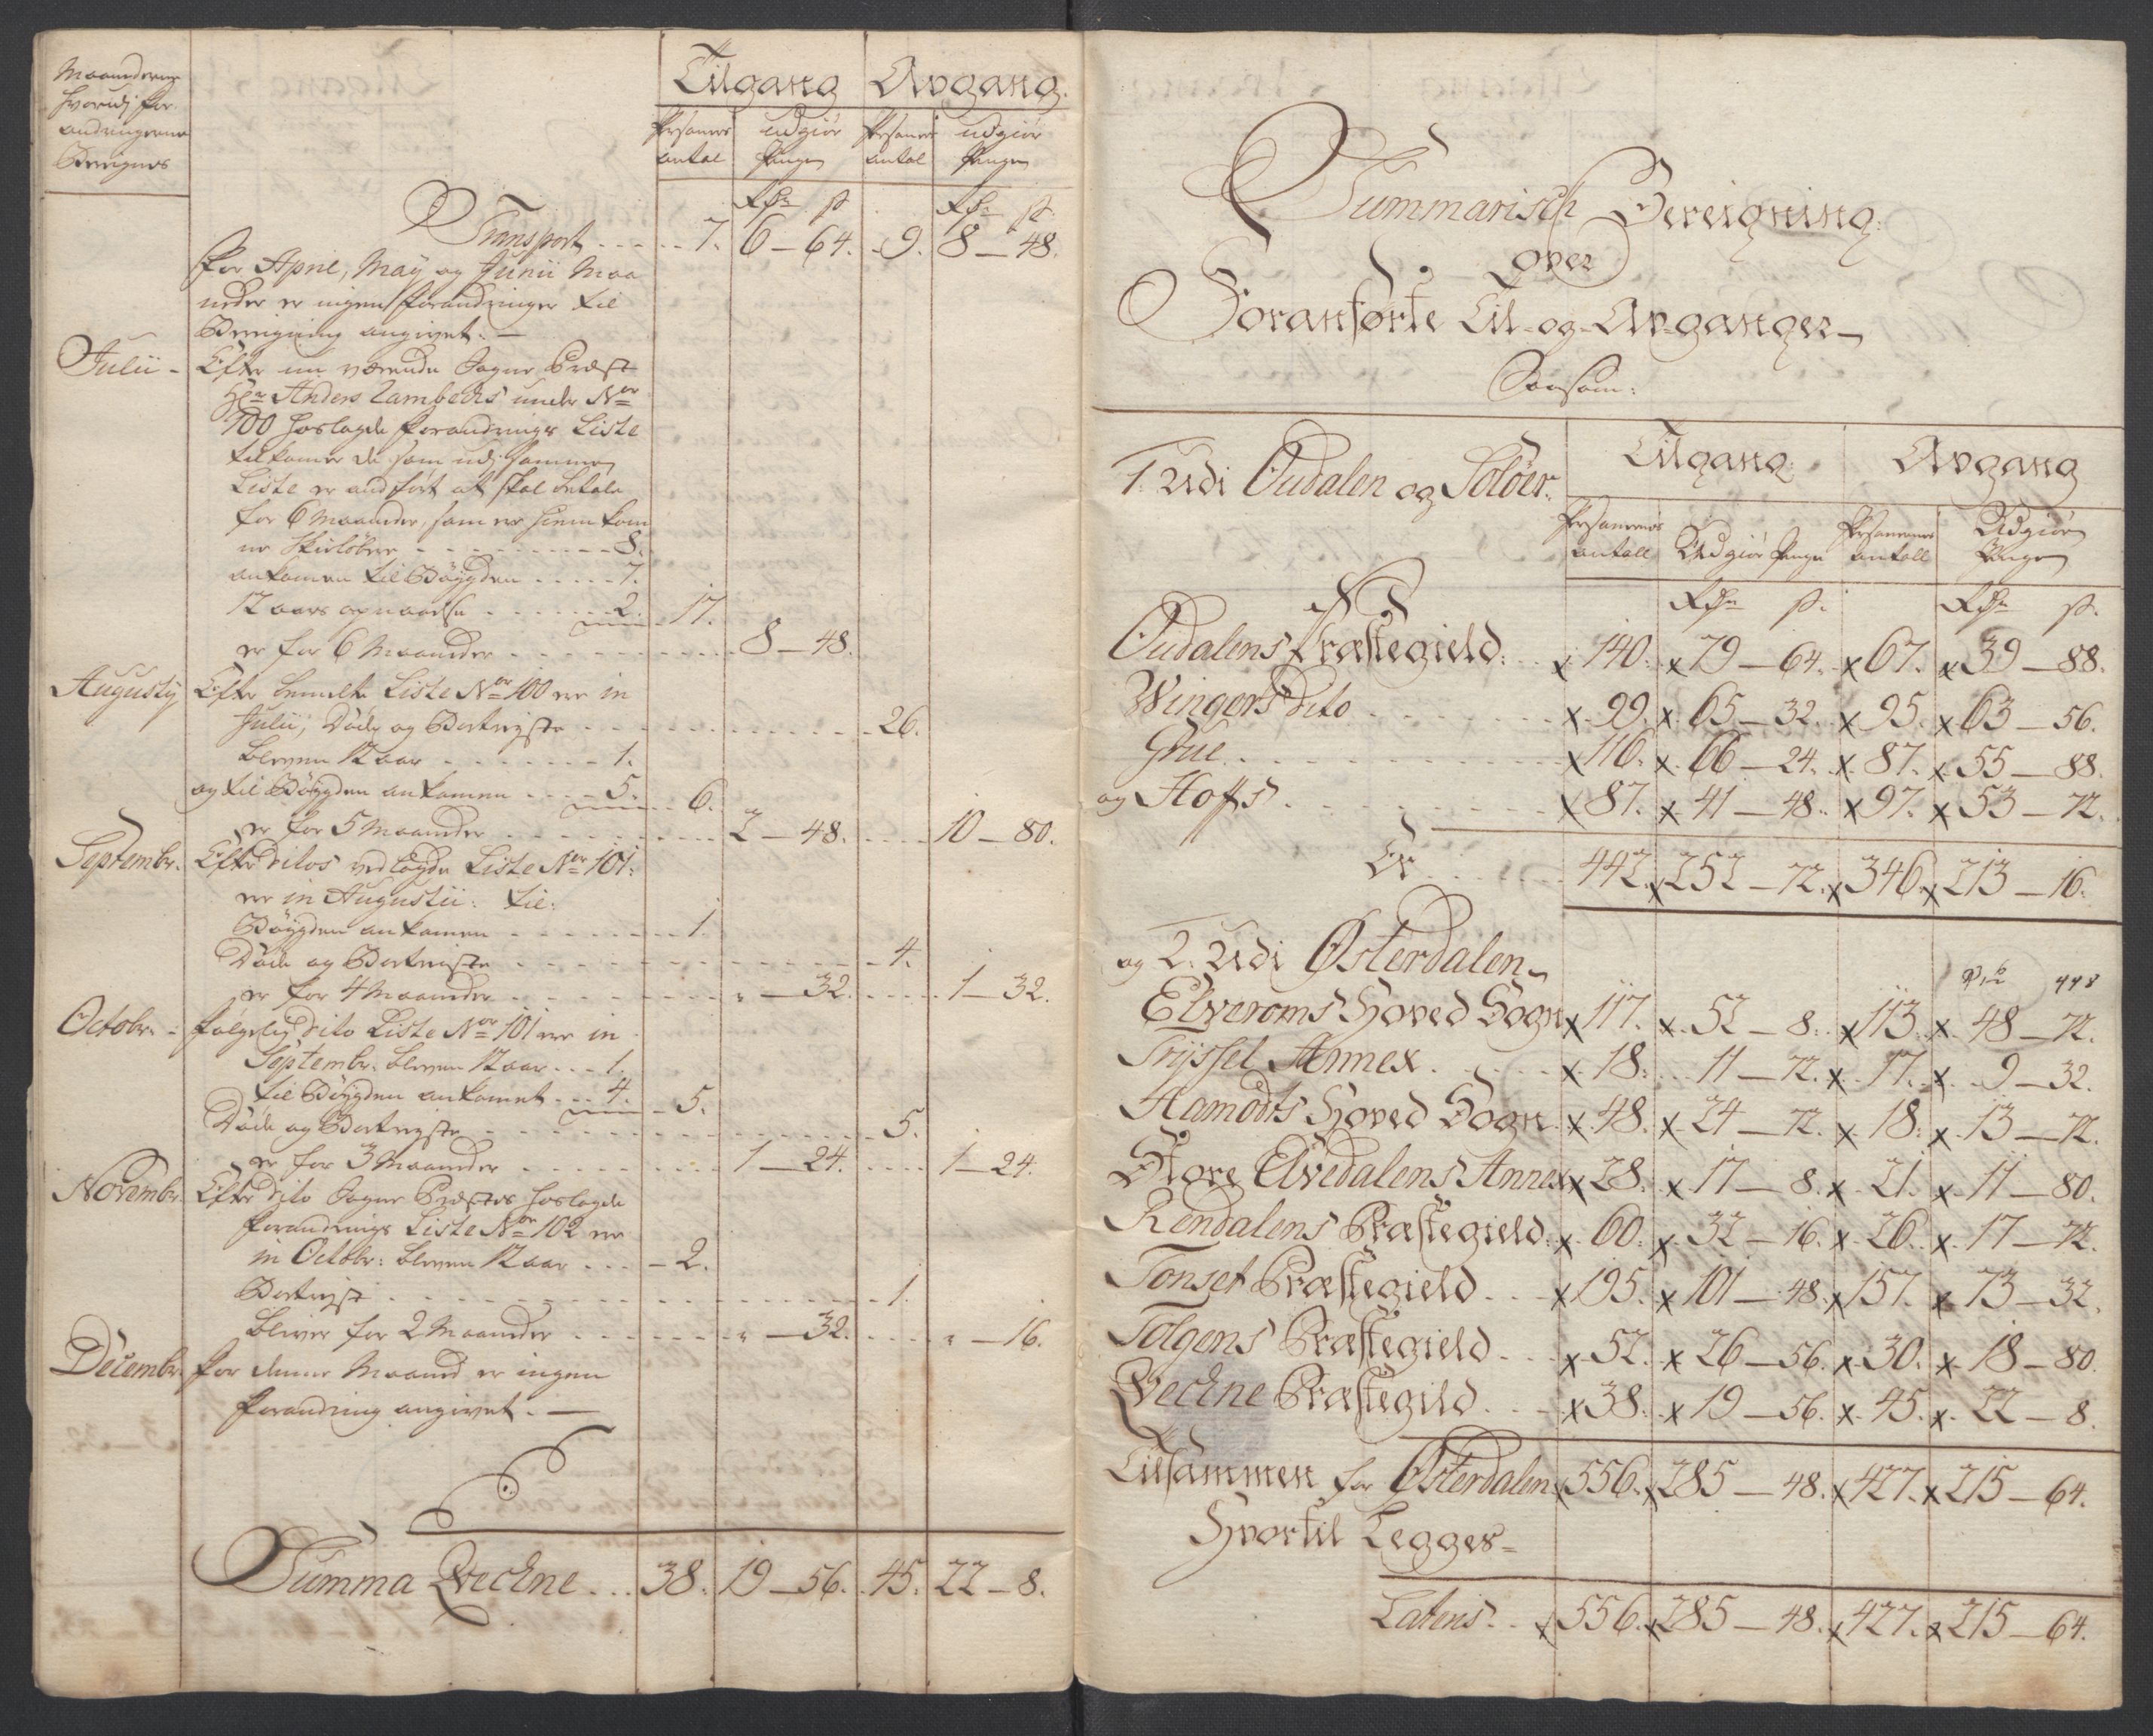 Maanederne
hvorudj for-
andringerne
Bereignes
Tilgang Avgang.
Persaners antal udgiør Penge Persaners antal udgiør Penge
Rdr ß Rdr ß
Transport - - - 7. 6 — 64. 9. 8 — 48.
For April, May og Junii Maa
neder er ingen forandringer til
Bereigning angivet. —
Julii - Efter nu værende Sogne Præst
Hr Anders Lambechs under No
100 hoslagde forandrings Liste
tilkomer de som udj samme
Liste er andført at skal betale
for 6 Maaneder, som er hiem kom
ne Skiløbere - - - - 8.
ankomen til Bøygden - - - - 7.
12 aars opnaaelse - - - - 2. 17.
er for 6 Maaneder - - - - 8 — 48.
Augustj Efter bemelte Liste No 100 ere in
Julii, Døde og Bortrejste - - - - 26.
bleven 12 aar - - - - 1.
og til Bøygden ankomen - - - - 5. 6.
er for 5 Maaneder - - - - 2 — 48. - - 10 — 80.
Septembr. Efter ditos vedlagde Liste No 101.
er in Augustii: til:
Bøygden ankomen - - - - 1.
Døde og Bortrejste - - - - 4.
er for 4 Maaneder - - - - " — 32. - - 1 — 32.
Octobr. - følgelig dito Liste No 101 ere in
Septembr. bleven 12 aar - - 1.
til Bøygden ankomet - - 4. 5.
Døde og Bortrejste - - - - 5.
er for 3 Maaneder - - - - 1 — 24. - - 1 — 24.
Novembr. Efter dito Sogne Præstes hoslagde
forandrings Liste No 102 ere
in Octobr: bleven 12 aar - - - 2.
Bortrejst - - - - 1.
bliver for 2 Maaneder - - - - " — 32. - - " — 16.
Decembr. for denne Maaned er ingen
forandring angivet. —
Summa Qvechne - - 38. 19 — 56. 45. 22 — 8.
Summarisch Bereigning
over
Foranførte Til- og Avganger
Saasom:
1. Udi Oudalen og Soløer. Tilgang Avgang
Persanernes antall Udgiør Penge Persanernes antall Udgiør Penge
Rdr ß. Rdr ß.
Oudalens Præstegield. x 140. x 79 — 64. x 67. x 39 — 88.
Wingers dito - - - - x 99. x 65 — 32. x 95. x 63 — 56.
Grue - - - - x 116. x 66 — 24. x 87. x 55 — 88.
og Hoffs - - - - x 87. x 41 — 48. x 97. x 53 — 72.
Er - - - - 442. x 252 — 72. x 346. x 213 — 16.
og 2. Udi Østerdalen
Elveroms Hoved Sogn x 117. x 52 — 8. x 113. x 48 — 72.
Trijssel Annex. - - x 18. 11 — 72. x 17. x 9 — 32.
Aamodts Hoved Sogn. x 48. x 24 — 72. x 18. x 13 — 72.
Store Elvedalens Annex x 28. x 17 — 8. x 21. x 11 — 80.
Rendalens Præstegield. x 60. x 32 — 16. x 26. x 17 — 72.
Tonset Præstegield - - x 195. x 101 — 48. x 157. x 73 — 32.
Tolgens Præstegield - - x 52. x 26 — 56. x 30. x 18 — 80.
Qvechne Præstegild - - x 38. x 19 — 56. x 45. x 22 — 8.
Tilsammen for Østerdalen x 556. x 285 — 48. x 427. x 215 — 64.
Hvortil Legges
Lateris. - - x 556. x 285 — 48. x 427. x 215 — 64.